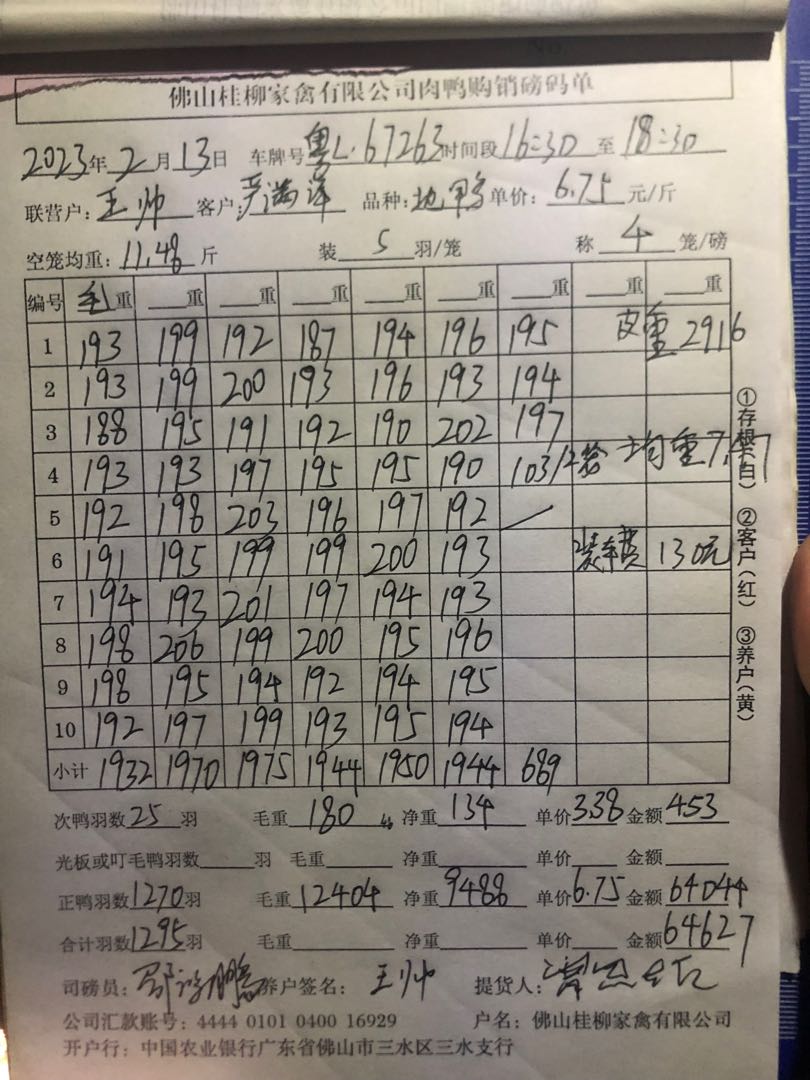 佛山桂柳家禽有限公司肉鸭购销磅码单
2023年2月13日 车牌号粤L.67263时间段16:30至18:30
联营户:王帅 客户:严满洋 品种:地鸭 单价:6.75元/斤
空笼均重:11.48斤 装5羽/笼 称4笼/磅
编号 毛重 重 重 重 重 重 重 重 重
1 193 199 192 187 194 196 195 皮重 2916
2 193 199 200 193 196 193 194
3 188 195 191 192 190 202 197
4 193 193 197 195 195 190 103/2笼 均重7.47
5 192 198 203 196 197 192 /
6 191 195 199 199 200 193 装车费 130元
7 194 193 201 197 194 193
8 198 206 199 200 195 196
9 198 195 194 192 194 195
10 192 197 199 193 195 194
小计 1932 1970 1975 1944 1950 1944 689
次鸭羽数25羽 毛重180 净重134 单价3.38 金额453
光板或叮毛鸭羽数 羽 毛重 净重 单价 金额
正鸭羽数1270羽 毛重12404 净重9488 单价6.75 金额64044
合计羽数1295羽 毛重 净重 单价 金额64627
司磅员: 养户签名:王帅 提货人:
公司汇款账号:4444 0101 0400 16929 户名:佛山桂柳家禽有限公司
开户行:中国农业银行广东省佛山市三水区三水支行
①存根(白) ②客户(红) ③养户(黄)